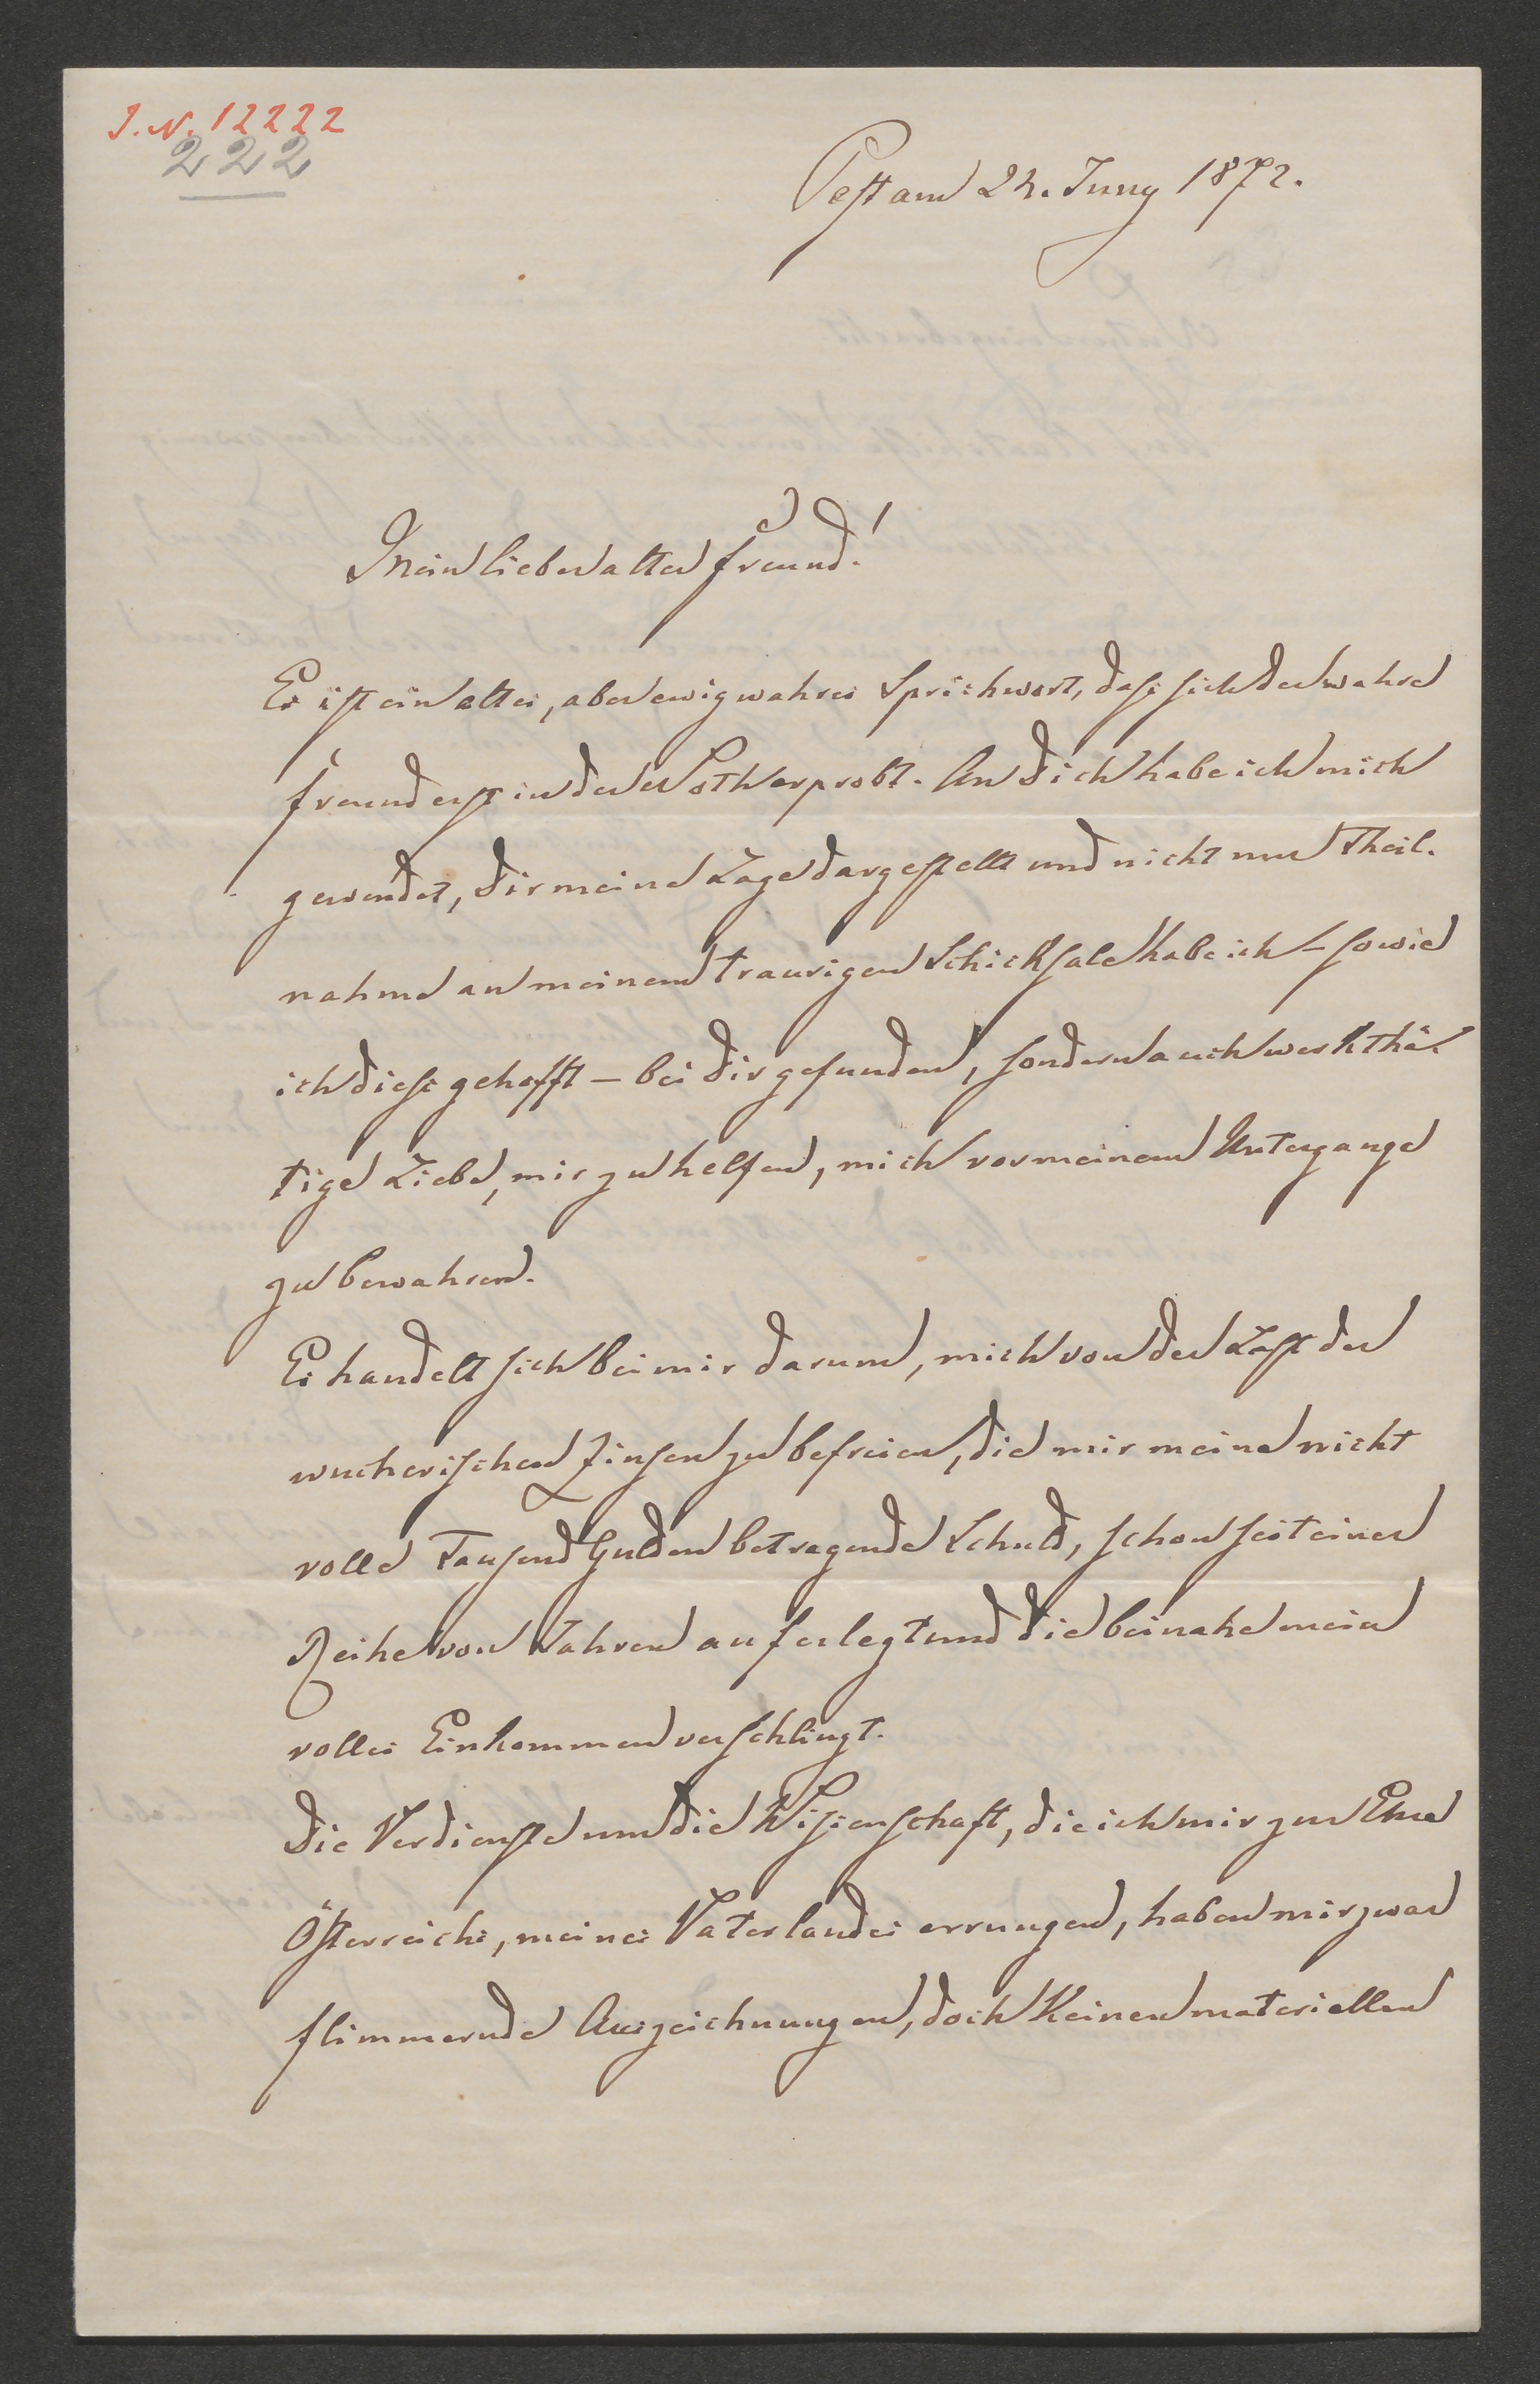 I.N. 12222
222
Pest am 22. Juny 1872.
Mein lieber alter Freund!
Es ist ein altes, aber ewig wahres Sprichwort, daß sich der wahre
Freund erst in der Noth erprobt. An Dich habe ich mich
gewendet, Dir meine Lage dargestellt und nicht nur Theil-
nahme an meinem traurigen Schicksale habe ich – sowie
ich diess gehofft – bei Dir gefunden, sondern auch werkthä-
tige Liebe, mir zu helfen, mich vor meinem Untergange
zu bewahren.
Es handelt sich bei mir darum, mich von der Last der
wucherischen Zinsen zu befreien, die mir meine nicht
volle Tausend Gulden betragende Schuld, schon seit einer
Reihe von Jahren auferlegt und die beinahe mein
volles Einkommen verschlingt.
Die Verdienste um die Wissenschaft, die ich mir zur Ehre
Österreichs, meines Vaterlandes errungen, haben mir zwar
flimmernde Auszeichnungen, doch keinen materiellen